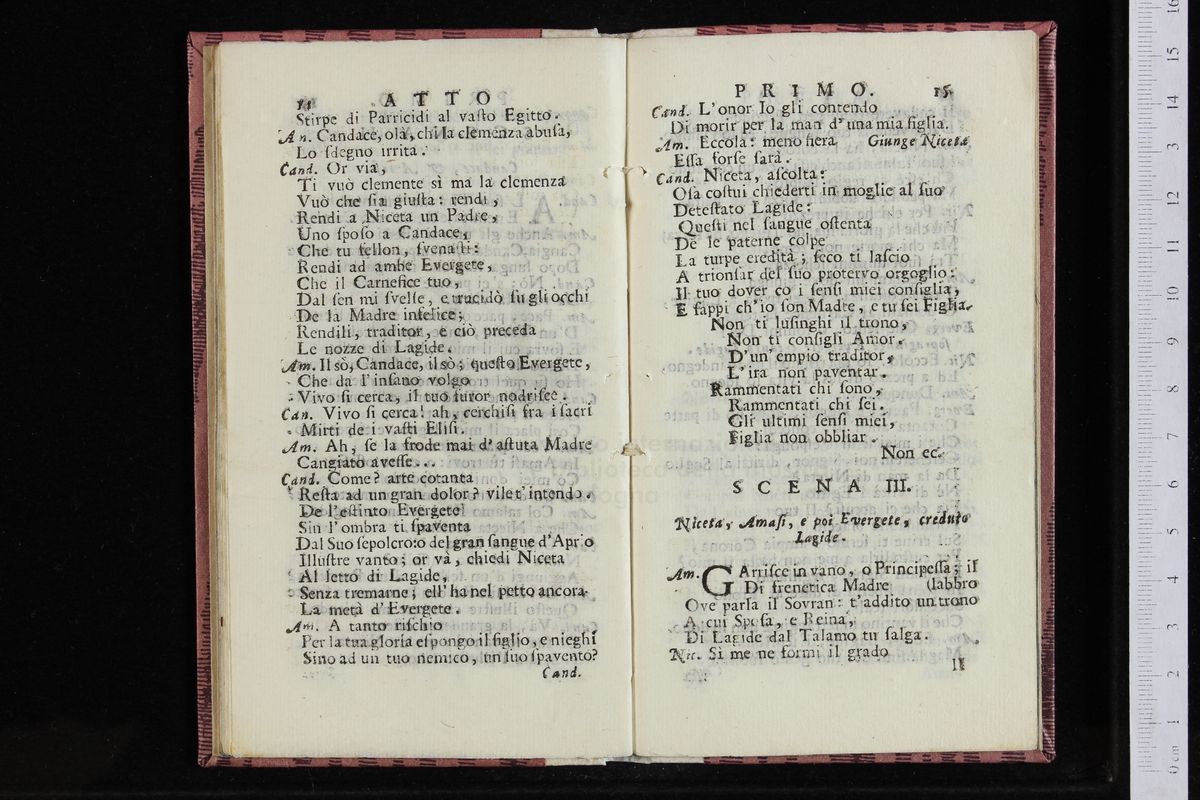 14 ATTO
Stirpe di Parricidi al vaſto Egitto.
An. Candace, olà, chi la clemenza abuſa,
Lo ſdegno irrita.
Cand. Or via,
Ti vuò clemente sì ma la clemenza
Vuò che ſia giuſta: rendi,
Rendi a Niceta un Padre,
Uno ſpoſo a Candace,
Che tu fellon, ſvenaſti:
Rendi ad ambe Evergete,
Che il Carnefice tuo,
Dal ſen mi ſvelſe, e trucidò ſu gli occhi
De la Madre infelice;
Rendili, traditor, e ciò preceda
Le nozze di Lagide.
Am. Il sò, Candace, il sò; queſto Evergete,
Che da l'inſano volgo
Vivo ſi cerca, il tuo furor nodriſce.
Can. Vivo ſi cerca! ah, cerchiſi fra i ſacri
Mirti de i vaſti Eliſi.
Am. Ah, ſe la frode mai d'aſtuta Madre
Cangiato aveſſe...
Cand. Come? arte cotanta
Reſta ad un gran dolor? vile t'intendo.
De l'eſtinto Evergete
Sin l'ombra ti ſpaventa
Dal Suo ſepolcro: o del gran ſangue d'Aprio
Illuſtre vanto; or và, chiedi Niceta
Al letto di Lagide,
Senza tremarne; ell' ha nel petto ancora
La metà d'Evergete.
Am. A tanto riſchio
Per la tua gloria eſpongo il figlio, e nieghi
Sino ad un tuo nemico, un ſuo ſpavento?
Cand.
PRIMO. 15
Cand. L'onor Io gli contendo
Di morir per la man d'una mia figlia.
Am. Eccola: meno fiera Giunge Niceta
Eſſa forſe ſarà.
Cand. Niceta, aſcolta:
Oſa coſtui chiederti in moglie al ſuo
Deteſtato Lagide:
Queſti nel ſangue oſtenta
De le paterne colpe
La turpe eredità; ſeco ti laſcio
A trionfar del ſuo protervo orgoglio:
Il tuo dover co i ſenſi miei conſiglia,
E ſappi ch'io ſon Madre, e tu ſei Figlia.
Non ti luſinghi il trono,
Non ti conſigli Amor.
D'un' empio traditor,
L'ira non paventar.
Rammentati chi ſono,
Rammentati chi ſei.
Gli ultimi ſenſi miei,
Figlia non obbliar.
Non ec.
SCENA III.
Niceta, Amaſi, e poi Evergete, creduto
Lagide.
Am. GArriſce in vano, o Principeſſa; il
Di frenetica Madre (labbro
Ove parla il Sovran: t'addito un trono
A cui Spoſa, e Reina,
Di Lagide dal Talamo tu ſalga.
Nic. Si me ne formi il grado
Il